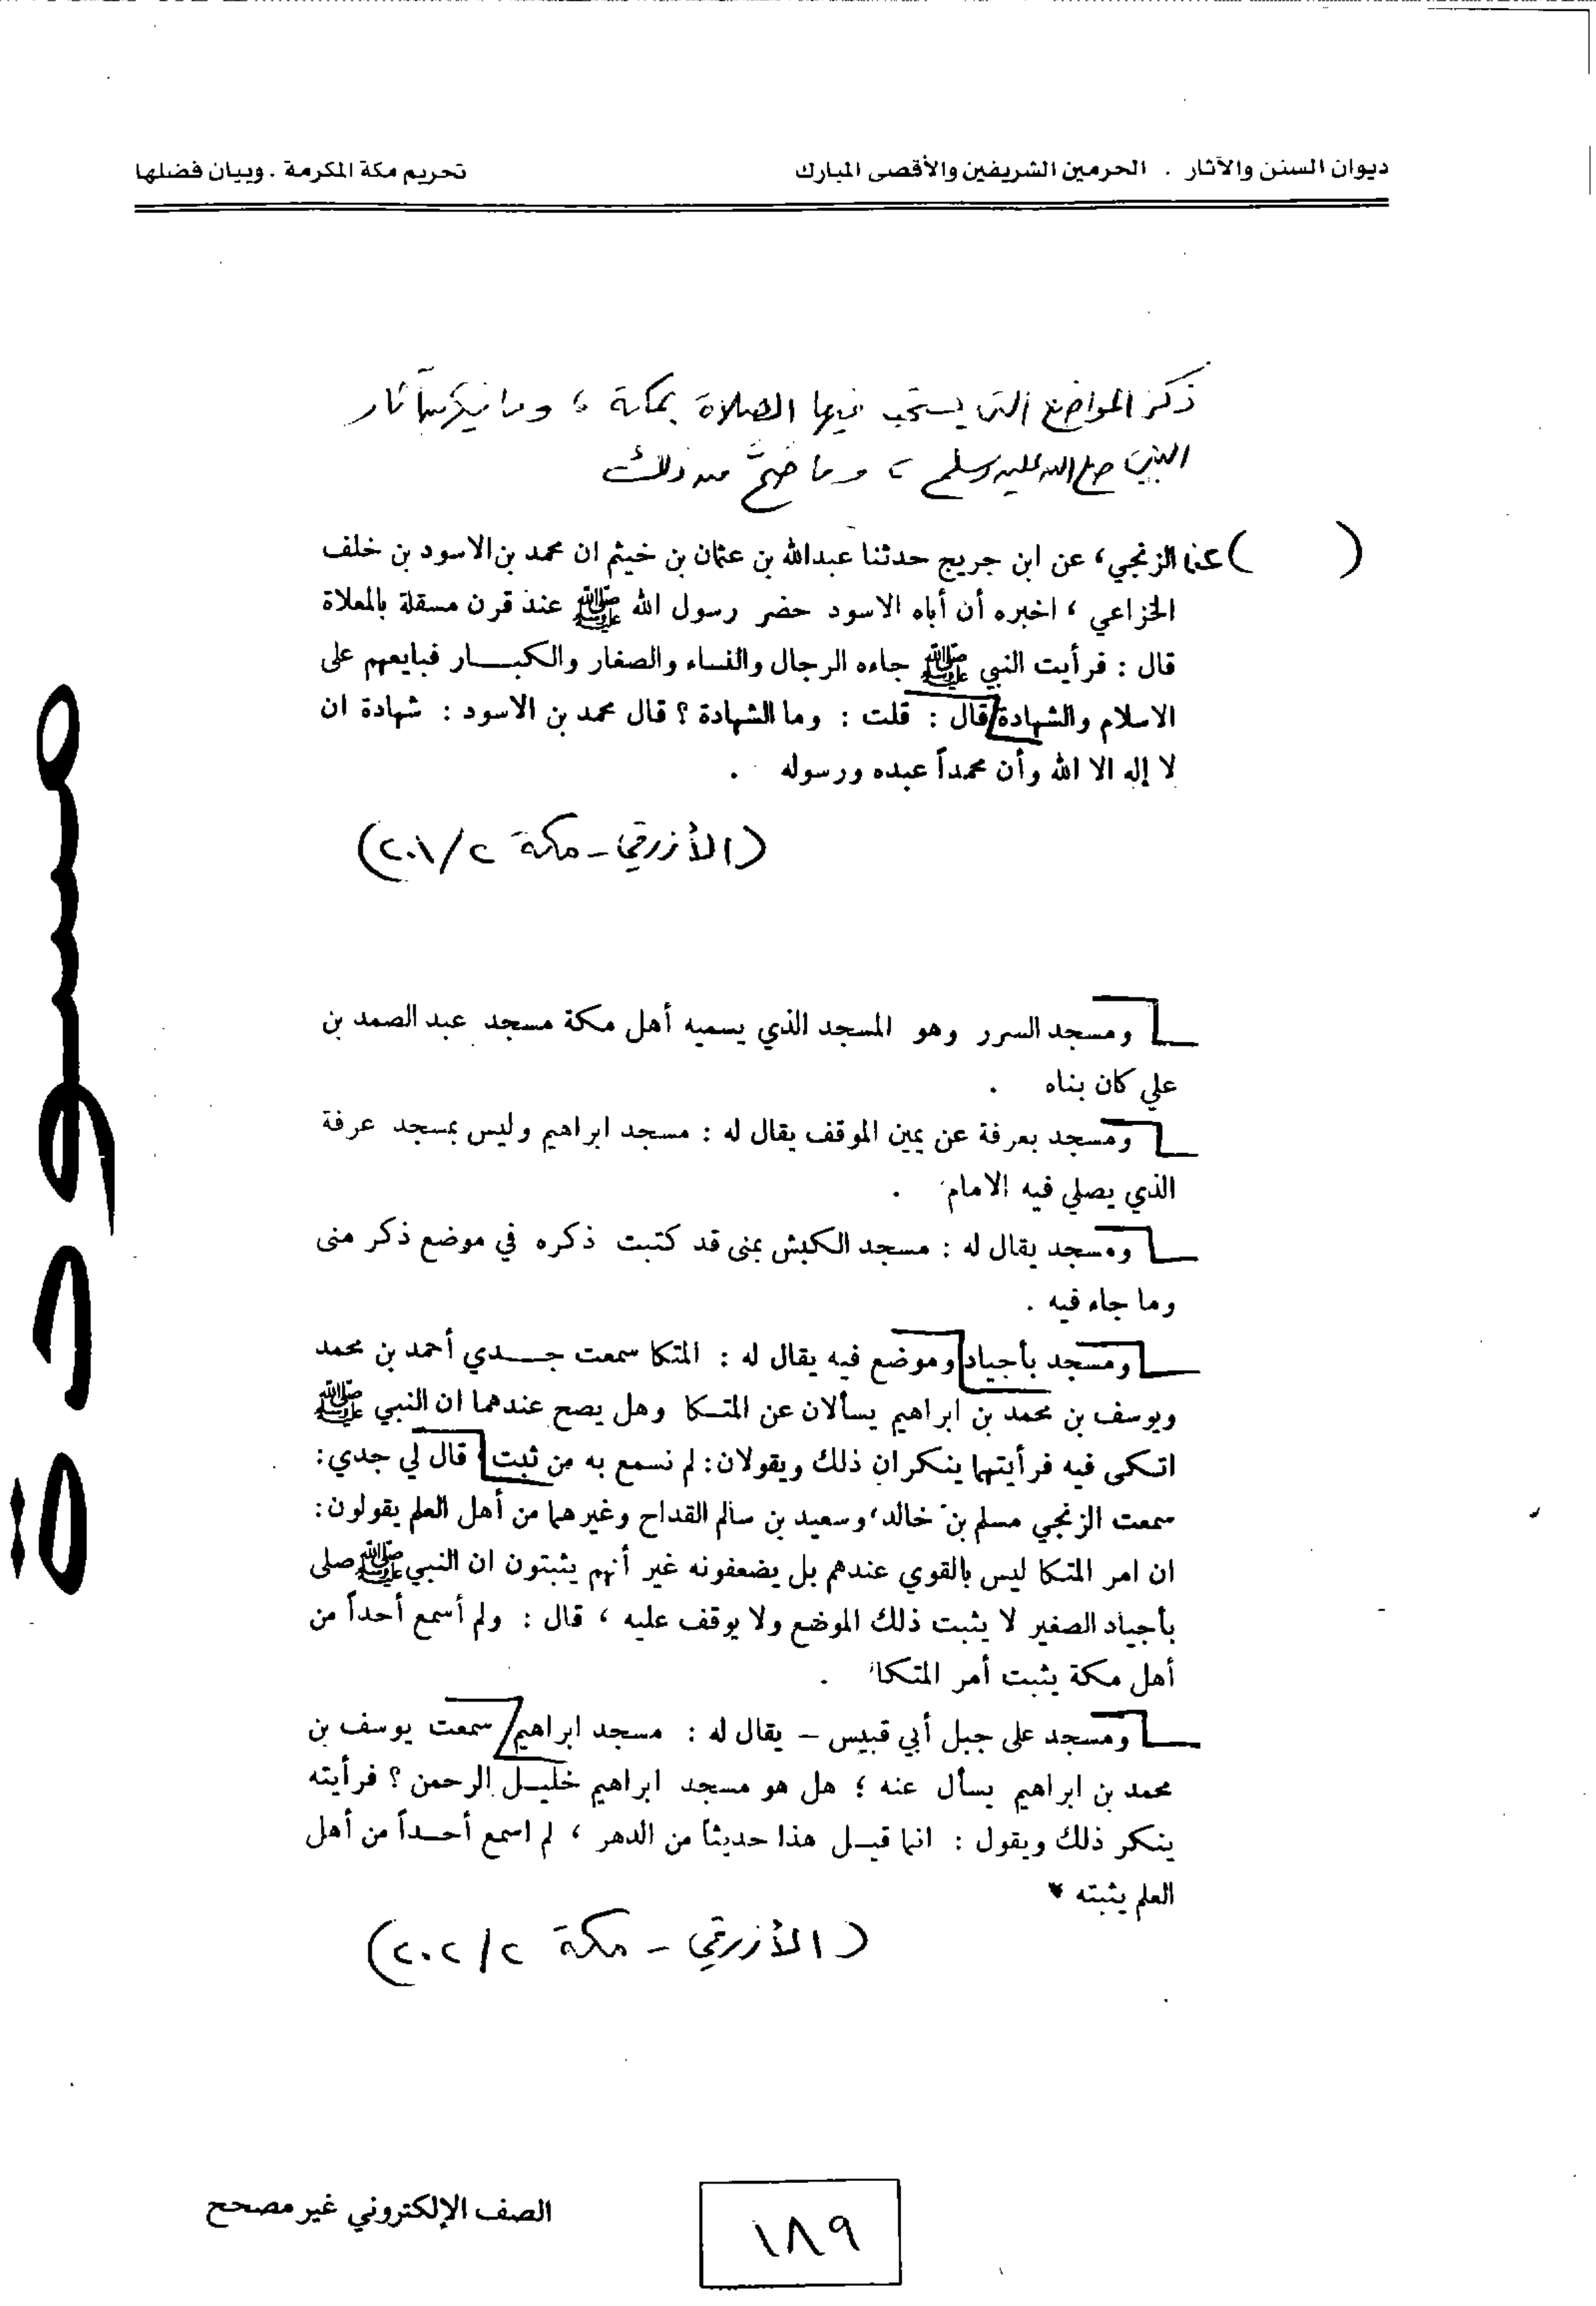 ديوان السنن والآثار . الحرمين الشريفين والأقصى المبارك
تحريم مكة المكرمة . وبيان فضلها
ذكر المواضع التي يستحب فيها الصلاة بمكة ، وما فيها من آثار
النبي صلى الله عليه وسلم ، وما صح من ذلك
( ) عن الزنجي، عن ابن جريج حدثنا عبدالله بن عثمان بن خيثم ان محمد بن الاسود بن خلف
الخزاعي ، اخبره أن أباه الاسود حضر رسول الله ﷺ عند قرن مسقلة بالمعلاة
قال : فرأيت النبي ﷺ جاءه الرجال والنساء والصغار والكبـــار فبايعهم على
الاسلام والشهادة قال : قلت : وما الشهادة ؟ قال محمد بن الاسود : شهادة ان
لا إله الا الله وأن محمداً عبده ورسوله .
(الأزرقي - مكة ٢/٢٠١)
ومسجد السرر وهو المسجد الذي يسميه أهل مكة مسجد عبد الصمد بن
علي كان بناه .
ومسجد بعرفة عن يمين الموقف يقال له : مسجد ابراهيم وليس بمسجد عرفة
الذي يصلي فيه الامام .
ومسجد يقال له : مسجد الكبش بمنى قد كتبت ذكره في موضع ذكر منى
وما جاء فيه .
ومسجد بأجياد وموضع فيه يقال له : المتكا سمعت جـــدي أحمد بن محمد
ويوسف بن محمد بن ابراهيم يسألان عن المتـكا وهل يصح عندهما ان النبي ﷺ
اتـكى فيه فرأيتهما ينكران ذلك ويقولان: لم نسمع به من ثبت، قال لي جدي:
سمعت الزنجي مسلم بن خالد، وسعيد بن سالم القداح وغيرهما من أهل العلم يقولون:
ان امر المتكا ليس بالقوي عندهم بل يضعفونه غير أنهم يثبتون ان النبي ﷺ صلى
بأجياد الصغير لا يثبت ذلك الموضع ولا يوقف عليه ، قال : ولم أسمع أحداً من
أهل مكة يثبت أمر المتكا .
ومسجد على جبل أبي قبيس – يقال له : مسجد ابراهيم سمعت يوسف بن
محمد بن ابراهيم يسأل عنه ؛ هل هو مسجد ابراهيم خليـل الرحمن ؟ فرأيته
ينكر ذلك ويقول : انما قيـل هذا حديثاً من الدهر ، لم اسمع أحـداً من أهل
العلم يثبته *
(الأزرقي - مكة ٢/٢٠٢)
مسودة
الصف الإلكتروني غير مصحح
١٨٩